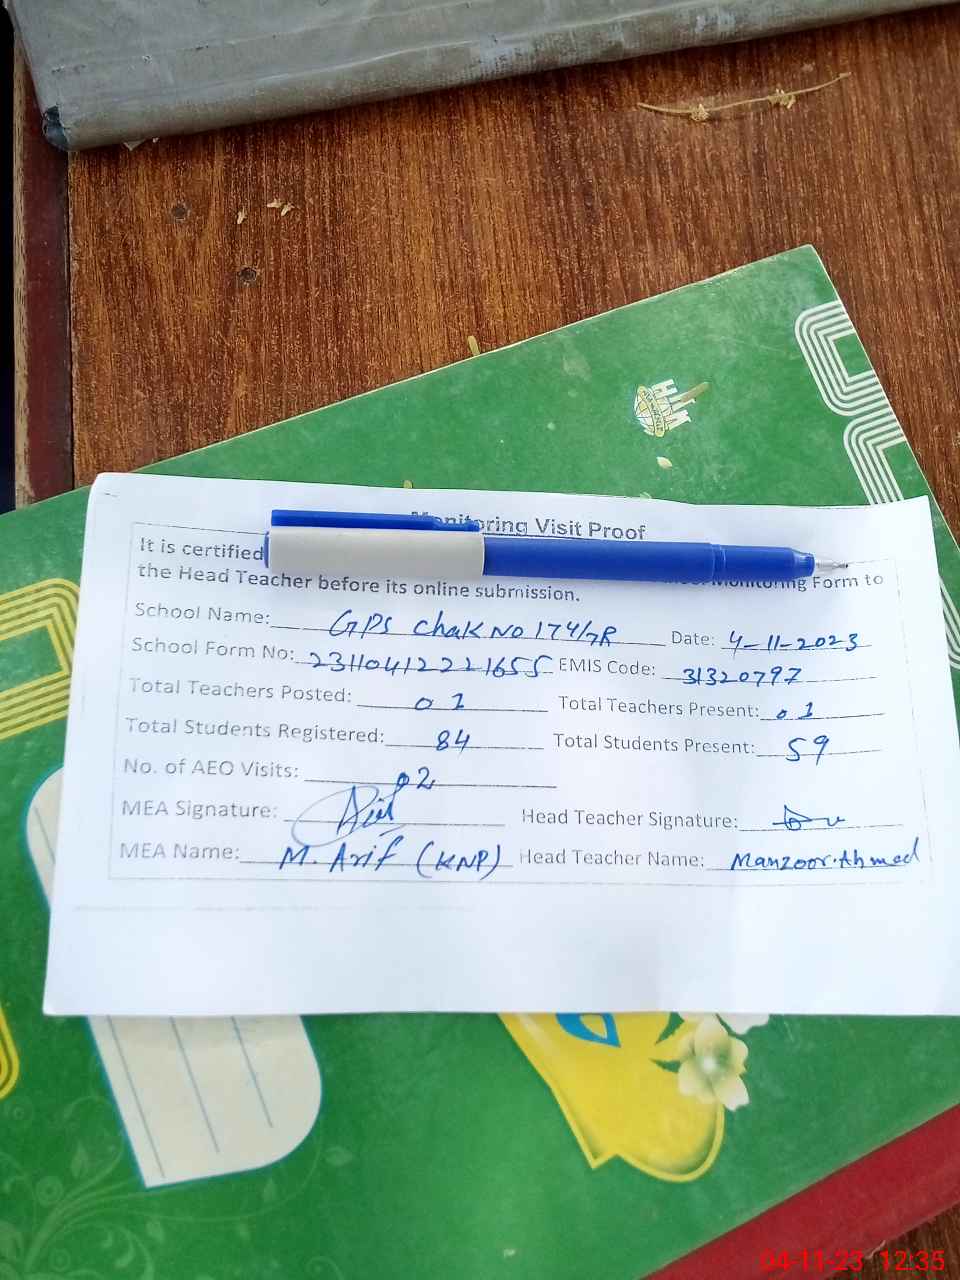 Monitoring Visit Proof
It is certified Monitoring Form to
the Head Teacher before its online submission.
School Name: GPS Chak No 174/7R Date: 4-11-2023
School Form No: 23110412221655 EMIS Code: 31320797
Total Teachers Posted: 01 Total Teachers Present: 01
Total Students Registered: 84 Total Students Present: 59
No. of AEO Visits: 02
MEA Signature: Head Teacher Signature:
MEA Name: M. Arif (KNP) Head Teacher Name: Manzoor Ahmed
04-11-23 12:35